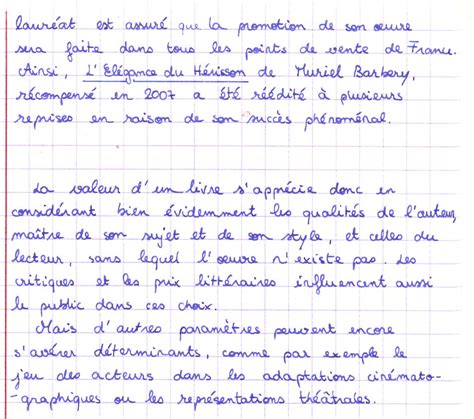 lauréat est assuré que la promotion de son œuvre
sera faite dans tous les points de vente de France.
Ainsi, L'Elégance du Hérisson de Muriel Barbery,
récompensé en 2007 a été réédité à plusieurs
reprises en raison de son succès phénoménal.
La valeur d'un livre s'apprécie donc en
considérant bien évidemment les qualités de l'auteur,
maître de son sujet et de son style, et celles du
lecteur, sans lequel l'œuvre n'existe pas. Les
critiques et les prix littéraires influencent aussi
le public dans ces choix.
Mais d'autres paramètres peuvent encore
s'avérer déterminants, comme par exemple le
jeu des acteurs dans les adaptations cinémato-
-graphiques ou les représentations théâtrales.